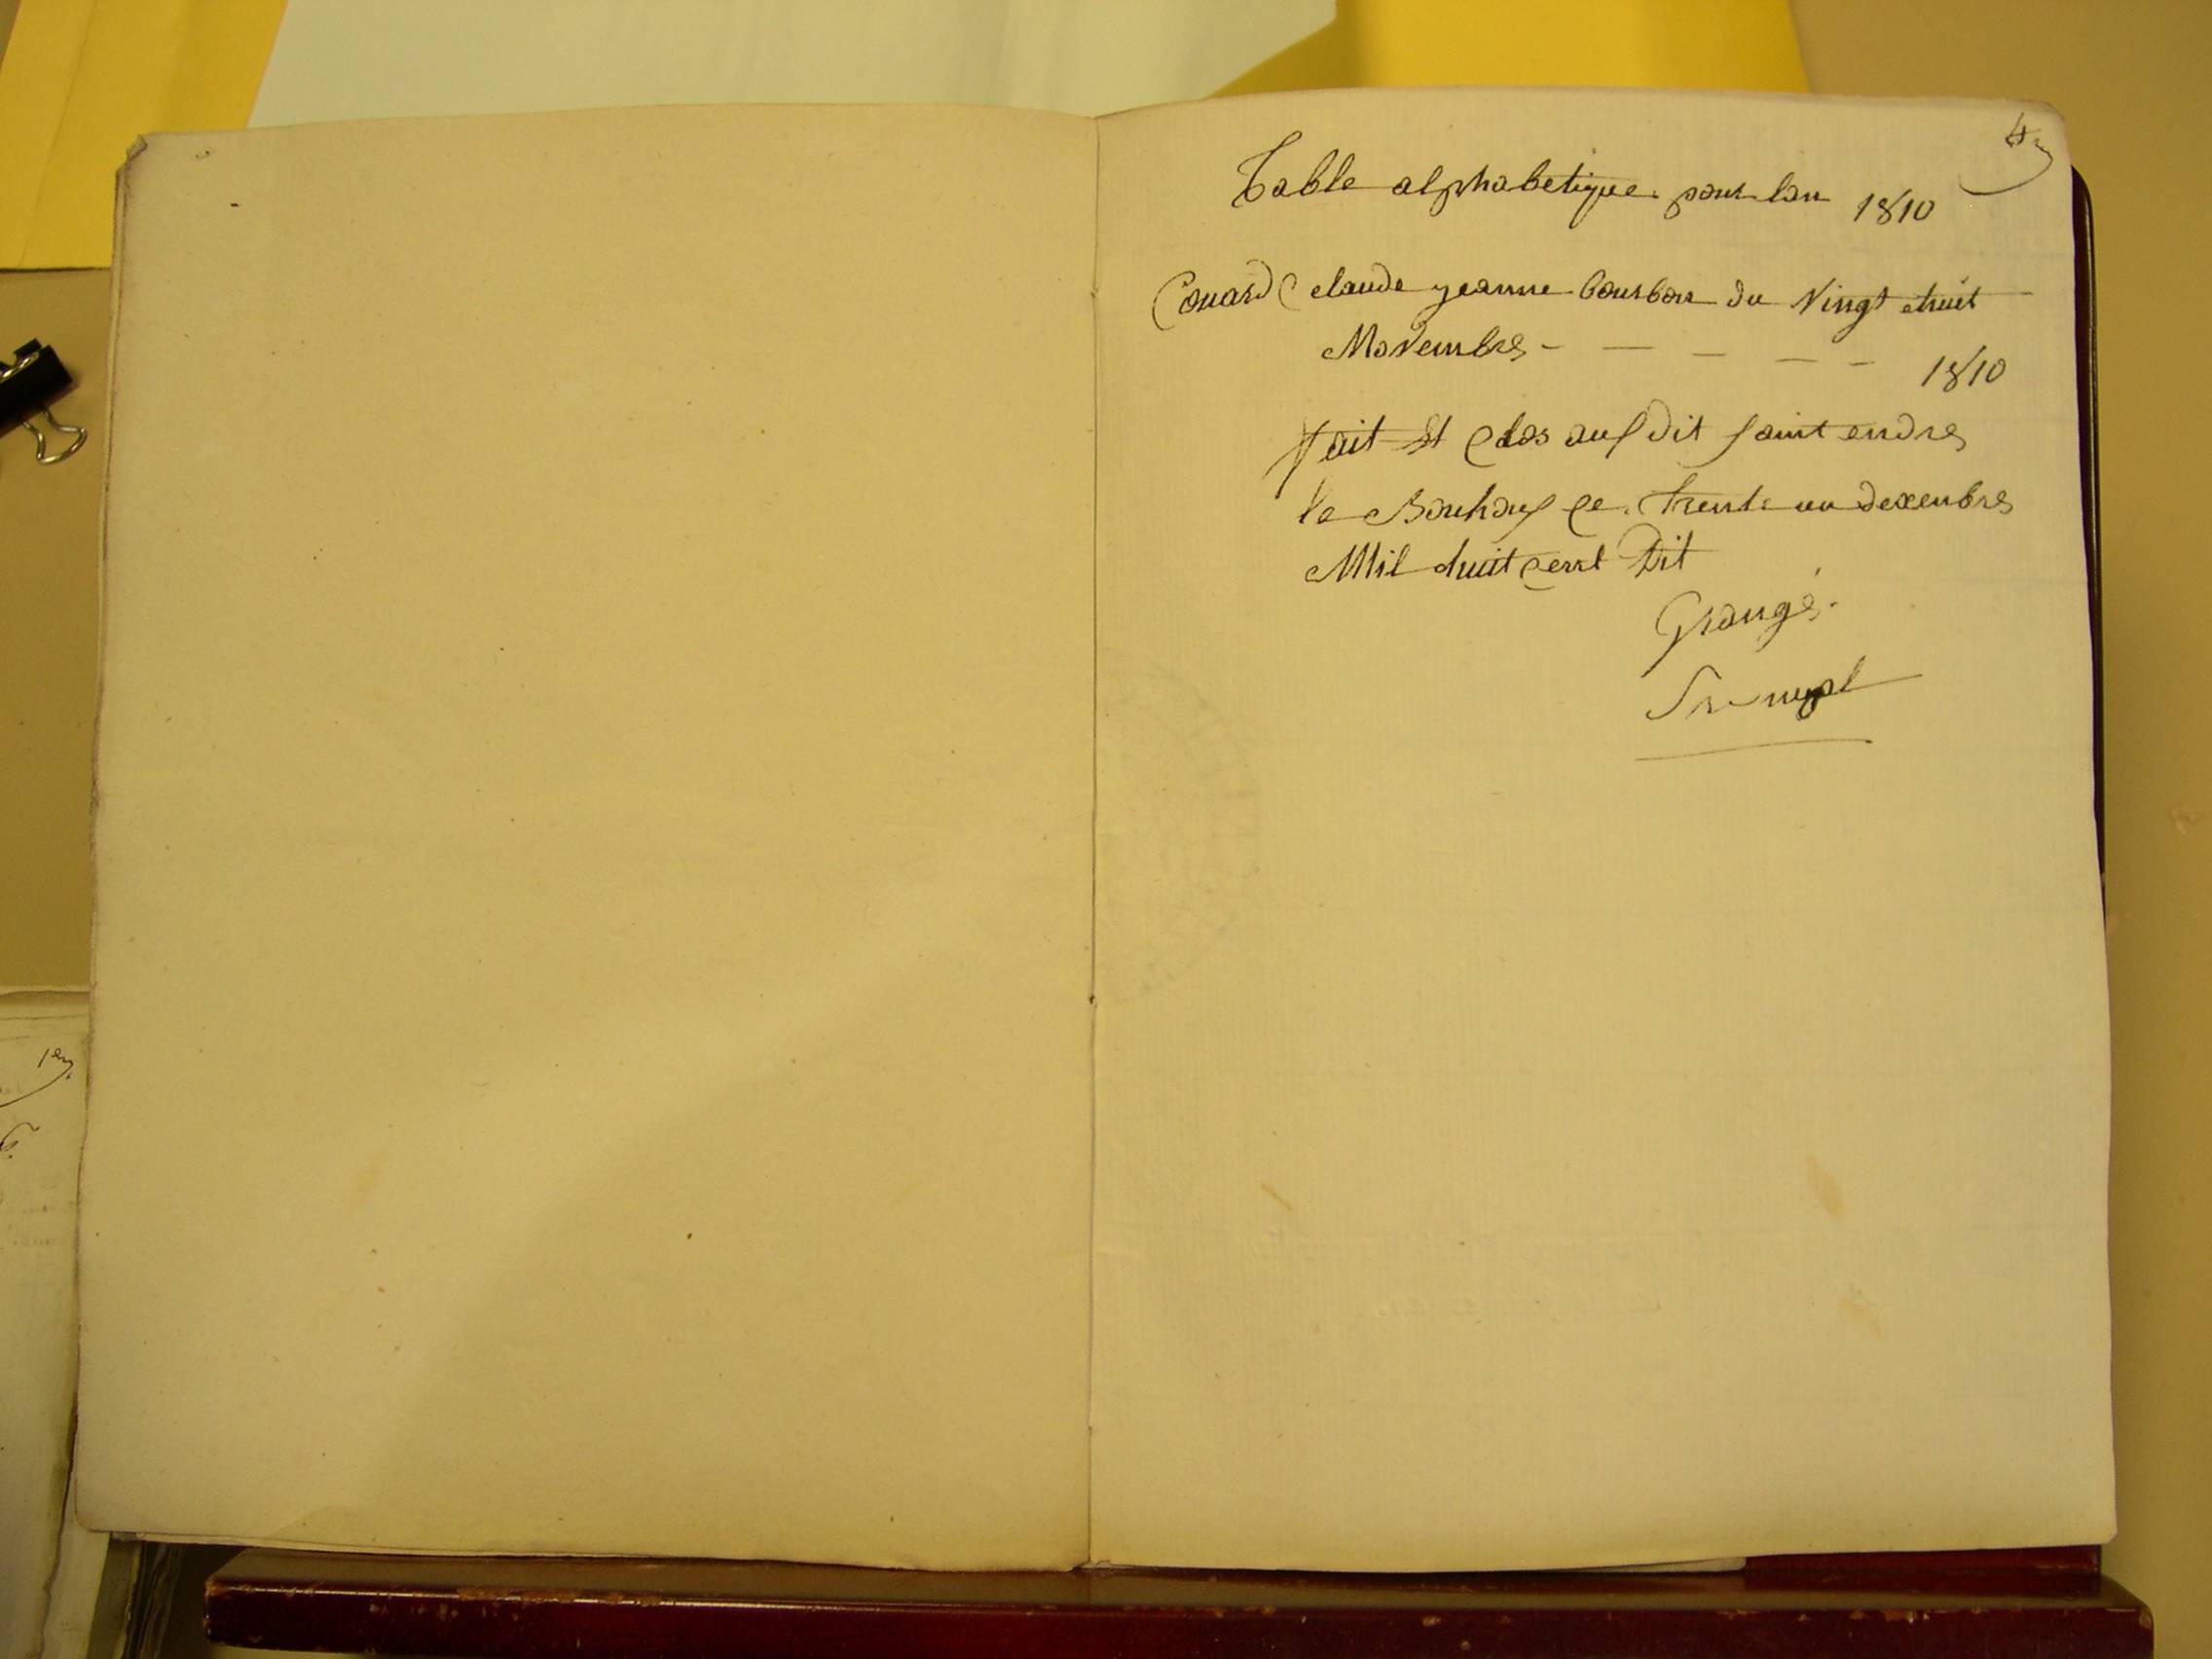 4e
Table alphabetique pour lan 1810
Couard Claude jeanne bourbon du Vingt et huit
Novembre - - - - - 1810
fait Et Clos aus dit saint andre
le Bouhous Ce trente un dexenbre
Mil huit cent Dit
Grange
1er